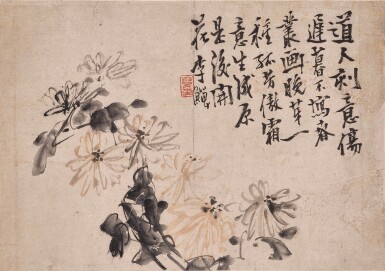 道人刻意傷
遲暮不寫春
叢画晚芳一
種孤芳傲霜
意生成原
是後開
花李鱓